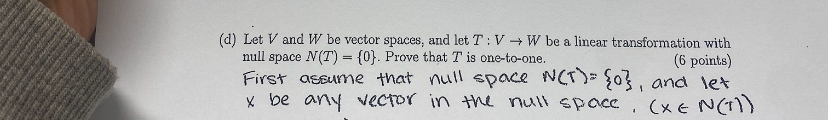 (d) Let V and W be vector spaces, and let T : V → W be a linear transformation with
null space N(T) = {0}. Prove that T is one-to-one. (6 points)
First assume that null space N(T)= {0}, and let
x be any vector in the null space. (x ∈ N(T))